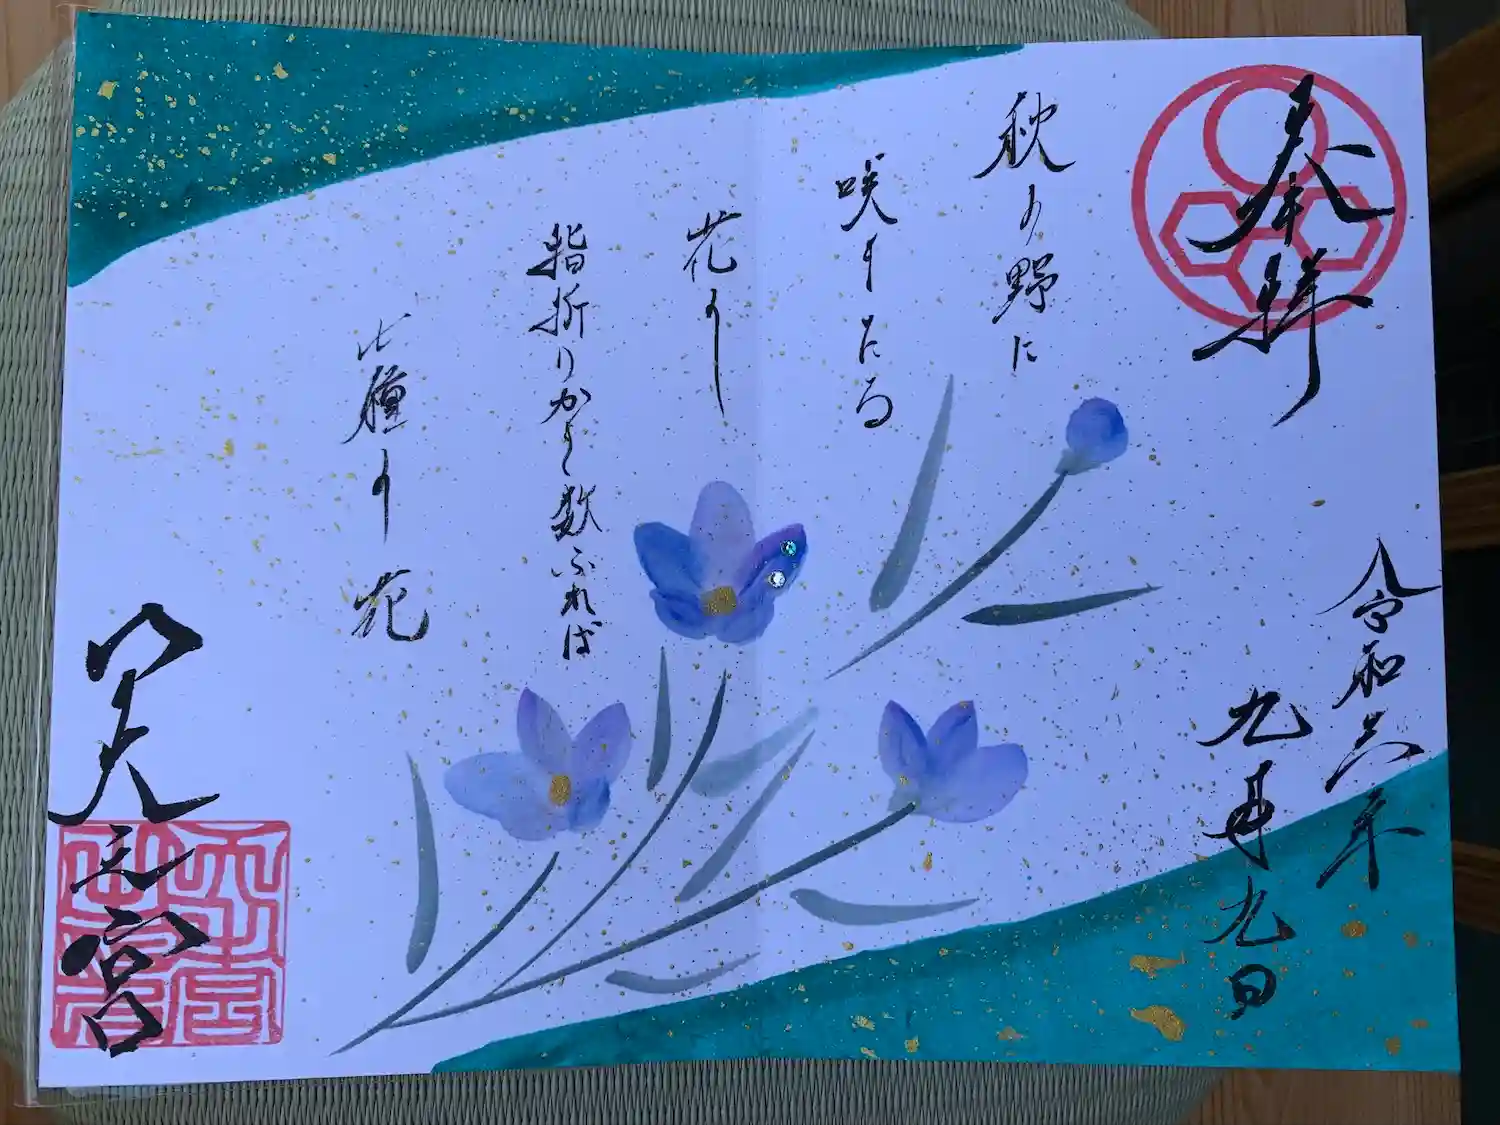 奉拝
秋の野に
咲きたる
花を
指折りかき数ふれば
七種の花
令和六年
九月九日
天之宮